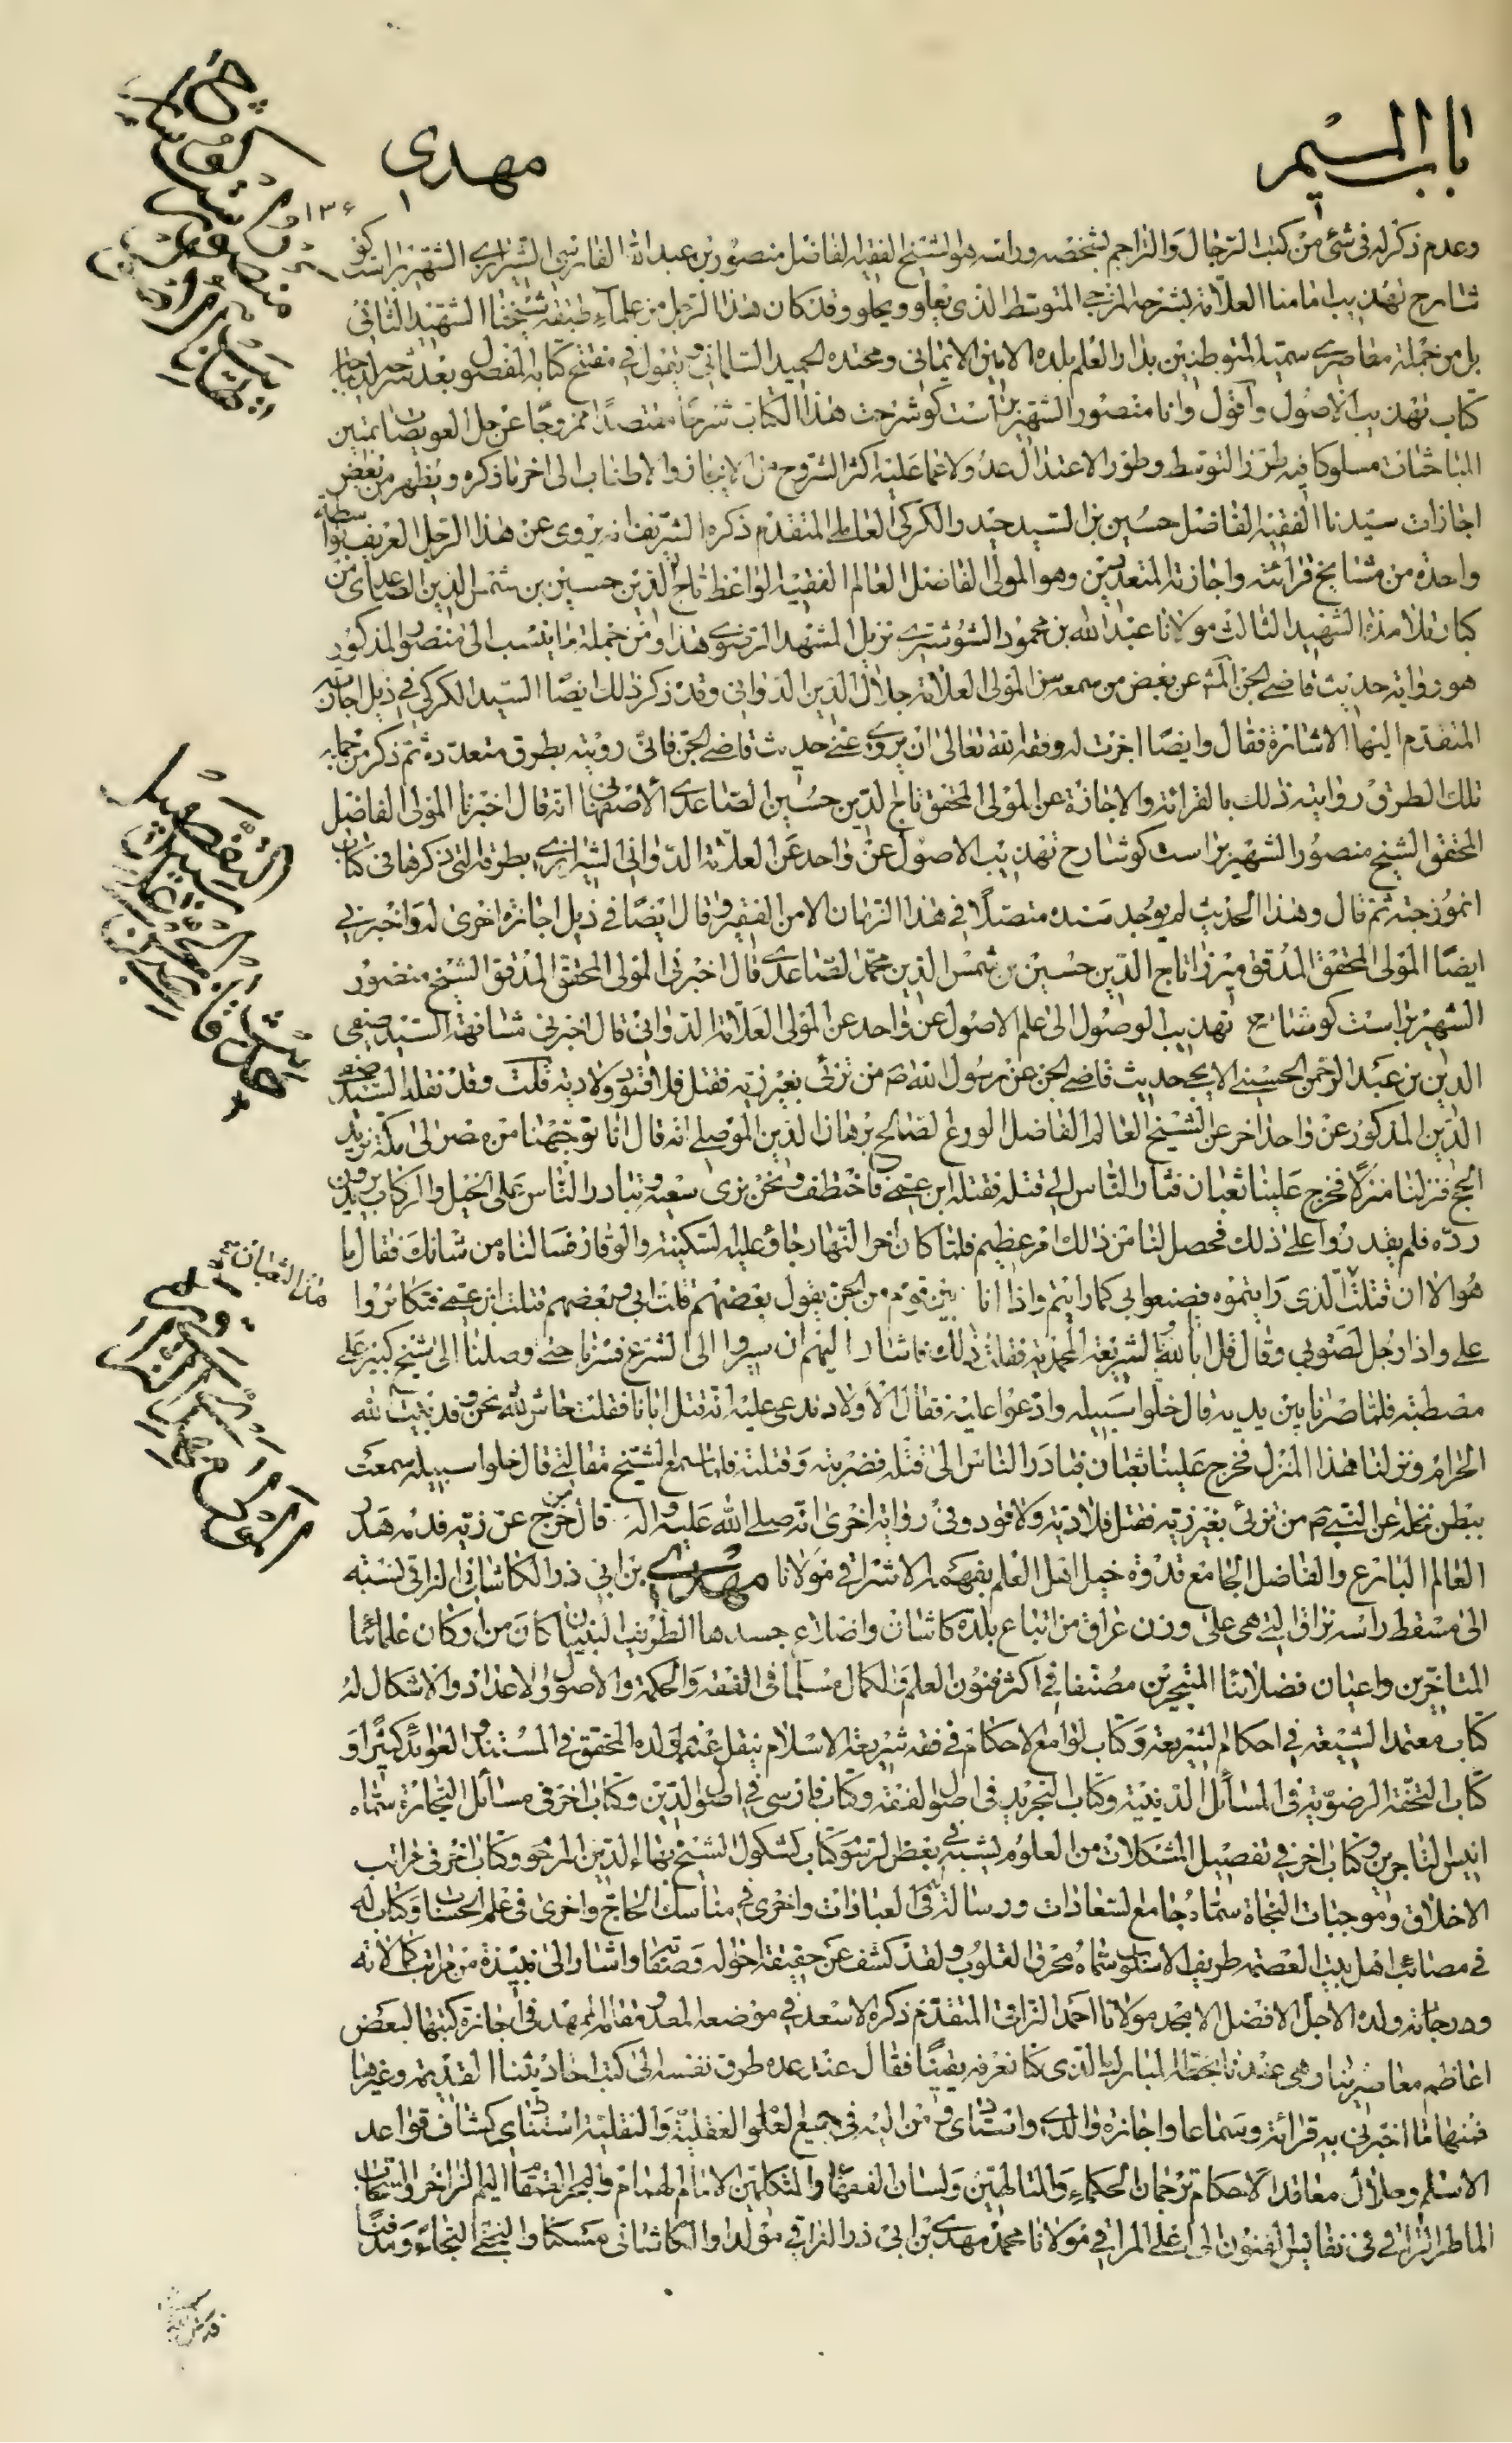 باب الميم
مهدي
١٣٤
وعدم ذكر له في شئ من كتب الرجال والتراجم بشخصه ورأسه هو الشيخ الفقيه الفاضل منصور بن عبد الله الفارسي الشيرازي الشهير براست كو
شارح تهذيب امامنا العلامة بشرحه المزجي المتوسط الذي يعلو ويحلو وقد كان هذا الرجل من علماء طبقة شيخنا الشهيد الثاني
بل من جملة معاصري سميه المتوطنين بدار العلم بلده الامين الايماني ومحتده الحميد السلماني يقول في مفتتح كتابه المفصول بعد
كتاب تهذيب الاصول وأقول وانا منصور الشهير براست كو شرحت هذا الكتاب شرحا مقتصدا ممزوجا عن حل العويصات
المباحثات مسلوكا فيه طرز التوسط وطور الاعتدال عدولا عما عليه اكثر الشروح من الايجاز والاطناب الى اخر ما ذكره ويظهر من بعض
اجازات سيدنا الفقيه الفاضل حسين بن السيد حيدر الكركي العاملي المتقدم ذكره الشريف انه يروى عن هذا الرجل العريف بواسطة
واحدة من مشايخ قرائته واجازته المتعددين وهو المولى الفاضل العالم الفقيه الواعظ تاج الدين حسين بن شمس الدين الصاعدي من
كبار تلامذة الشهيد الثالث مولانا عبد الله بن محمود الشوشتري نزيل المشهد الرضوي هذا ومن جملة ما ينسب الى منصور المذكور
هو رواية حديث قاضي الجن عن بعض من سمعه من المولى العلامة جلال الدين الدواني وقد ذكر ذلك ايضا السيد الكركي في ذيل اجازته
المتقدم اليها الاشارة فقال وايضا اجزت له وفقه الله تعالى ان يروي عني حديث قاضي الجن فاني رويته بطرق متعددة ثم ذكر من جملة
تلك الطرق روايته ذلك بالقرائة والاجازة عن المولى المحقق تاج الدين حسين الصاعدي الاصفهاني انه قال اخبرنا المولى الفاضل
المحقق الشيخ منصور الشهير براست كو شارح تهذيب الاصول عن واحد عن العلامة الدواني الشيرازي بطرقه التي ذكرها في كتاب
انموزجته ثم قال وهذا الحديث لم يوجد سنده متصلا في هذا الزمان الا من الفقير وقال ايضا في ذيل اجازة اخرى له واخبرني
ايضا المولى المحقق المدقق ميرزا تاج الدين حسين بن شمس الدين محمد الصاعدي قال اخبرني المولى المحقق المدقق الشيخ منصور
الشهير براست كو شارح تهذيب الوصول الى علم الاصول عن واحد عن المولى العلامة الدواني قال اخبرني مشافهة السيد صفي
الدين بن عبد الرحمن الحسيني الايجي حديث قاضي الجن عن رسول الله ص من تزئى بغير زيه فقتل فلا قود ولا دية قلت وقد نقله السيد صفي
الدين المذكور عن واحد اخر عن الشيخ العالم الفاضل الورع الصالح برهان الدين الموصلي انه قال انا توجهنا من مصر الى مكة نريد
الحج فنزلنا منزلا فخرج علينا ثعبان فثار الناس الى قتله فقتله ابن عمي فاختطف ونحن نرى سعيه وتبادر الناس على الخيل والركاب يريدون
رده فلم يقدروا على ذلك فحصل لنا من ذلك امر عظيم فلما كان اخر النهار جاؤ عليه السكينة والوقار فسالناه من شانك فقال ما
هو الا ان قتلت هذا الثعبان الذي رايتموه فصنعوا بي كما رايتم واذا انا بين قوم من الجن يقول بعضهم قتلت ابي وبعضهم قتلت ابن عمي فتكاثروا
علي واذا رجل لصق بي وقال قل انا بالله وبالشريعة المحمدية فقلت ذلك فاشار اليهم ان سيروا الى الشرع فسرنا حتى وصلنا الى شيخ كبير على
مصطبة فلما صرنا بين يديه قال خلوا سبيله وادعوا عليه فقال الاولاد ندعي عليه انه قتل ابانا فقلت حاش لله نحن وفد بيت الله
الحرام ونزلنا هذا المنزل فخرج علينا ثعبان فتبادر الناس الى قتله فضربته وقتلته فلما سمع الشيخ مقالتي قال خلوا سبيله سمعت
ببطن نخلة عن النبي ص من تزئى بغير زيه فقتل فلا دية ولا قود وفي رواية اخرى انه صلى الله عليه واله قال من خرج عن زيه فدمه هدر
العالم البارع والفاضل الجامع قدوة خيل اهل العلم بفهمه الاشراقي مولانا مهدي بن ابي ذر الكاشاني النراقي نسبة
الى مسقط راسه نراق التي هي على وزن عراق من اتباع بلدة كاشان واضلاع جسدها الطويب البنيان كان من اركان علمائنا
المتاخرين واعيان فضلائنا المتبحرين مصنفا في اكثر فنون العلم والكمال مسلما في الفقه والحكمة والاصول والاعداد والاشكال له
كتاب معتمد الشيعة في احكام الشريعة وكتاب لوامع الاحكام في فقه شريعة الاسلام ينقل عنهما ولده المحقق في المستند والعوائد كثيرا و
كتاب التحفة الرضوية في المسائل الدينية وكتاب التجريد في اصول الفقه وكتاب فارسي في اصول الدين وكتاب اخر في مسائل التجارة سماه
انيس التاجرين وكتاب اخر في تفصيل المشكلات من العلوم يشبه في بعض الرسوم كتاب كشكول الشيخ بهاء الدين المرحوم وكتاب اخر في مراتب
الاخلاق وموجبات النجاة سماه جامع السعادات ورسالة في العبادات واخرى في مناسك الحاج واخرى في علم الحساب وكتاب له
في مصائب اهل بيت العصمة طريف الاسلوب سماه محرق القلوب ولقد كشف عن حقيقة احواله وصفاته واشار الى نبذة من مراتب كمالاته
ودرجاته ولده الاجل الافضل الامجد مولانا احمد النراقي المتقدم ذكره الاسعد في موضعه المعد فقال في اجازة كتبها لبعض
اعاظم معاصرينا وهي عندنا بخطه المبارك الذي كنا نعرفه يقينا فقال عند عده طرق نفسه الى كتب احاديثنا القديمة وغيرها
فمنها ما اخبرني به قرائة وسماعا واجازة والدي واستادي ومن اليه في جميع العلوم العقلية والنقلية استنادي كشاف قواعد
الاسلام وحلال معاقد الاحكام ترجمان الحكماء والمتالهين ولسان الفقهاء والمتكلمين الامام الهمام والبحر القمقام اليم الزاخر والسحاب
الماطر الراقي في نفايس الفنون الى اعلى المراقي مولانا محمد مهدي بن ابي ذر النراقي مولدا والكاشاني مسكنا والنجفي التجاء ومدفنا